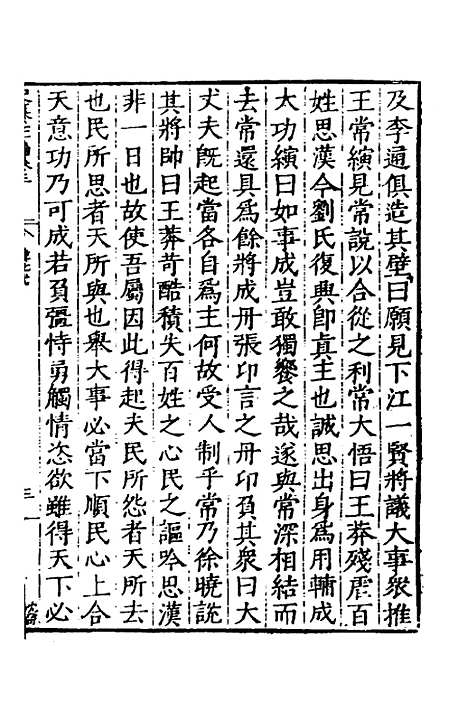 及李通俱造其壁曰願見下江一賢將議大事衆推
王常縯見常說以合從之利常大悟曰王莽殘虐百
姓思漢今劉氏復興卽真主也誠思出身爲用輔成
大功縯曰如事成豈敢獨饗之哉遂與常深相結而
去常還具爲餘將成丹張卬言之丹卬負其衆曰大
丈夫旣起當各自爲主何故受人制乎常乃徐曉說
其將帥曰王莽苛酷積失百姓之心民之謳吟思漢
非一日也故使吾屬因此得起夫民所怨者天所去
也民所思者天所與也舉大事必當下順民心上合
天意功乃可成若負彊恃勇觸情恣欲雖得天下必